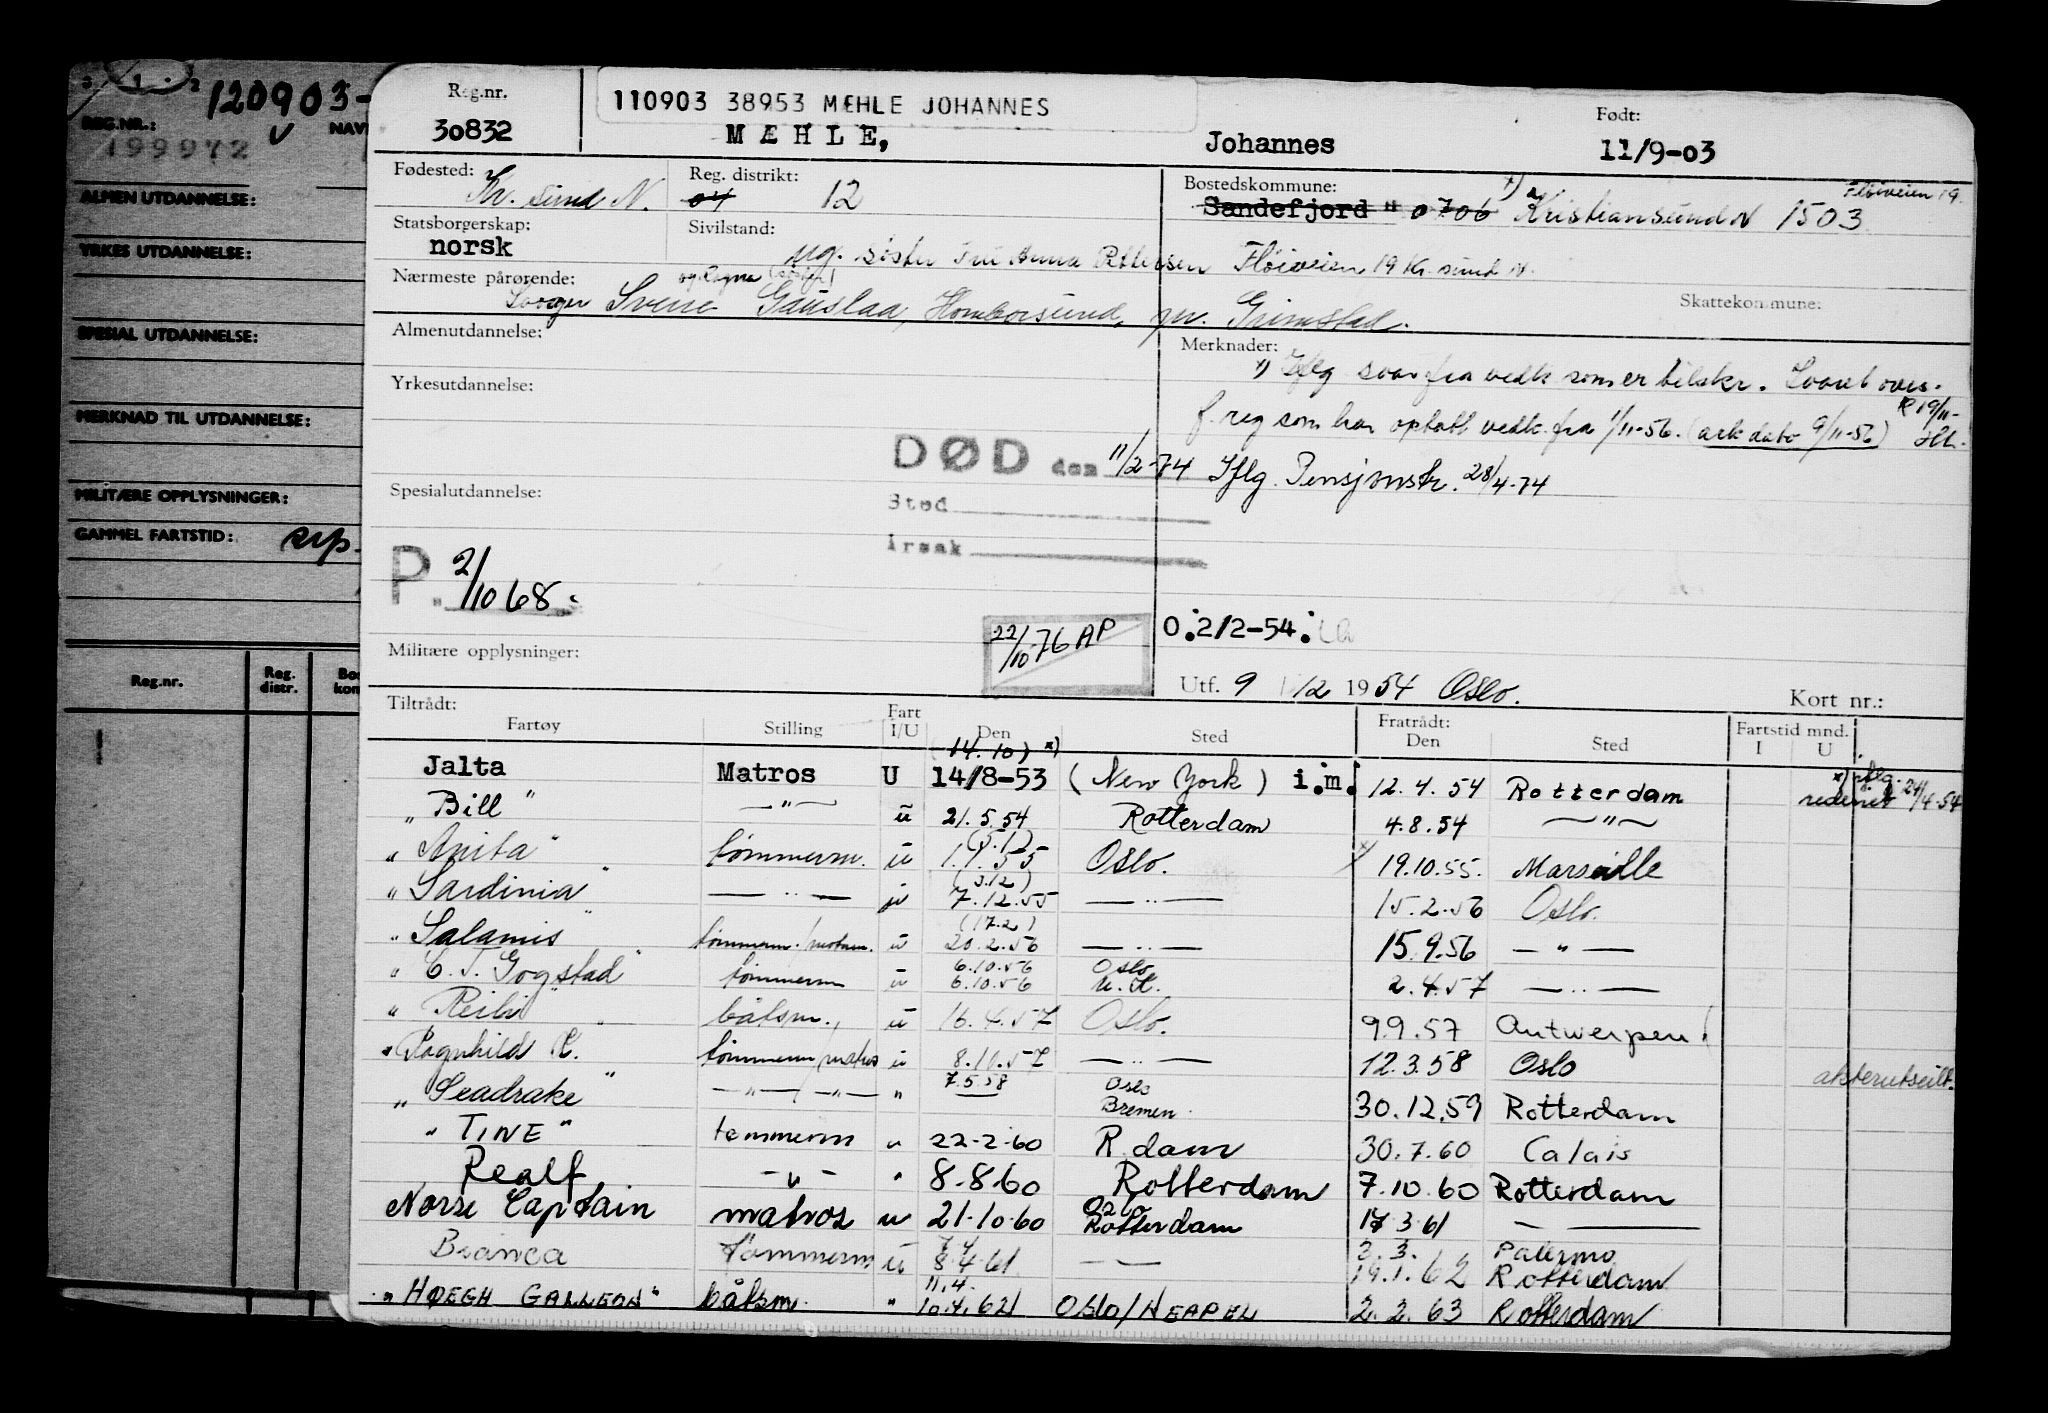 120903-
REG.NR.:
NAV
199972
ALMEN UTDANNELSE:
YRKES UTDANNELSE:
SPESIAL UTDANNELSE:
MERKNAD TIL UTDANNELSE:
MILITÆRE OPPLYSNINGER:
GAMMEL FARTSTID:
Reg.nr.
Reg. distr.
Bos kom
Reg.nr.
30832
110903 38953 MÆHLE JOHANNES
MÆHLE, Johannes
Født:
11/9-03
Fødested: Kr. sund N.
Reg. distrikt: 04 12
Bostedskommune: 1) Fløiveien 19.
Sandefjord " 0706 Kristiansund N 1503
Statsborgerskap:
norsk
Sivilstand:
ug. søster Fru Anna Pettersen Fløiveien 19 Kr. sund N.
Nærmeste pårørende: og Ragna (søster)
Svoger Sverre Gauslaa, Homborsund, pr. Grimstad.
Skattekommune:
Almenutdannelse:
Merknader:
1) Iflg svar fra vedk som er bilskr. Svaret overs.
f. reg som har optatt vedk. fra 1/11-56. (ark dato 9/11-56) R 19/11-
Yrkesutdannelse:
DØD den 11/2-74 Iflg. Pensjonstr. 28/4-74
Sted
Årsak
Spesialutdannelse:
P. 2/10 68.
22/10-76 AP
O.2/2-54.
Militære opplysninger:
Utf. 9 /12 1954 Oslo.
Kort nr.:
Tiltrådt:
Fartøy Stilling Fart I/U Den Sted
Fratrådt:
Den Sted
Fartstid mnd.
I U
(14.10) x)
Jalta Matros U 14/8-53 (New York) i.m. 12.4.54 Rotterdam x) iflg. rederiet 24/4-54
"Bill" —"— ū 21.5.54 Rotterdam 4.8.54 —"—
(5.1)
"Anita" tømmerm. ū 1.1.55 Oslo. x 19.10.55. Marseille
(3.12)
"Sardinia" — " — 7.12.55 — " — 15.2.56 Oslo.
(17.2)
"Salamis" tømmerm./motorm. ū 20.2.56 — " — 15.9.56 — " —
6.10.56 Oslo
"C. T. Gogstad" tømmerm ū 6.10.56 U.K. 2.4.57 — " —
båtsm. ū 16.4.57 Oslo. 9.9.57 Antwerpen
"Ragnhild B." tømmerm/matros ū 8.11.57 — " — 12.3.58 Oslo
"Seadrake" —"—/—"— " 7.5.58 Oslo Bremen. 30.12.59 Rotterdam akterutseilt.
"TINE" tømmerm u 22-2-60 R.dam 30.7.60 Calais
Realf — " — " 8.8.60 Rotterdam 7.10.60 Rotterdam
Norse Captain matros u 21-10-60 Oslo Rotterdam 17 3 61 — —
7.4 3.3. Palermo
Bianca Tømmerm ū 8.4.61 — — 19.1.62 Rotterdam
11.4.
"HØEGH GALLEON" båtsm. " 10.4.62 OSLO/NEAPEL 2.2.63 Rotterdam